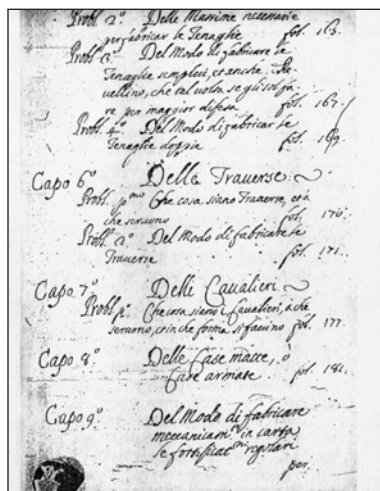 Probl. 2º Delle Massime necessarie
per fabricar le Tenaglie fol. 163.
Probl. 3º Del Modo di fabricare le
Tenaglie semplici, et anche il Re-
vellino, che tal volta se gli suol fa-
re per maggior difesa fol. 167.
Probl. 4º Del Modo di fabricar le
Tenaglie doppie fol. 169.
Capo 6º Delle Traverse:
Probl. pmo Che cosa siano Traverse, et à
che servono fol. 170.
Probl. 2º Del Modo di fabricare le
Traverse fol. 171.
Capo. 7º Delli Cavalieri.
Probl. pº Che cosa siano i Cavalieri, à che
servono, et in che forma si facino fol. 177.
Capo. 8º Delle Case matte, ò
Case armate. fol. 181.
Capo 9º Del Modo di fabricare
meccanicamte in carta
le fortificatni regolari
per.